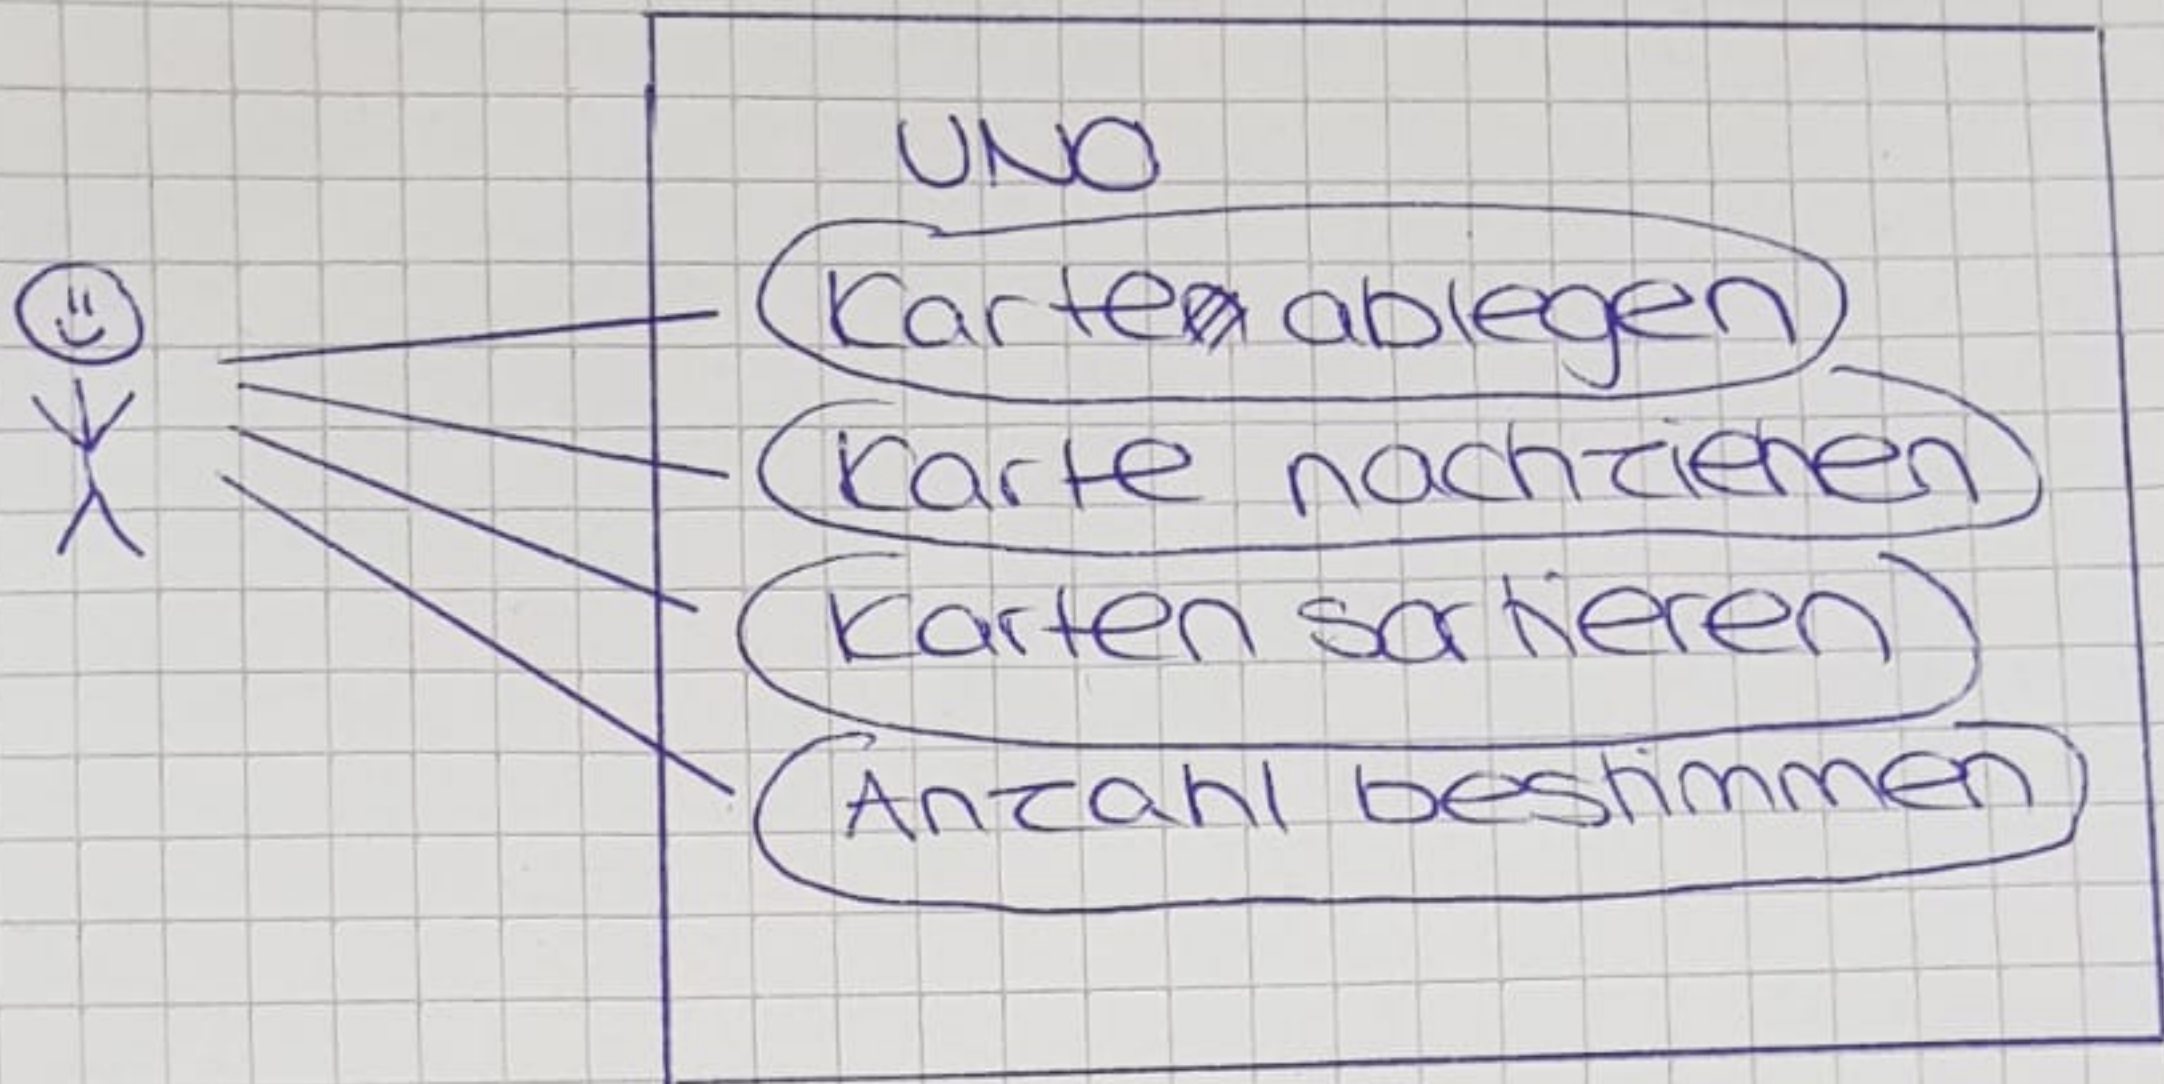 UNO
Karte ablegen
Karte nachziehen
Karten sortieren
Anzahl bestimmen